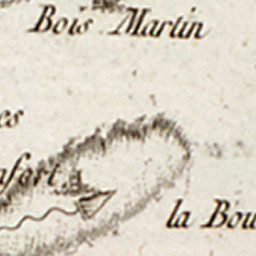 Bois Martin
es
afort
la Bou